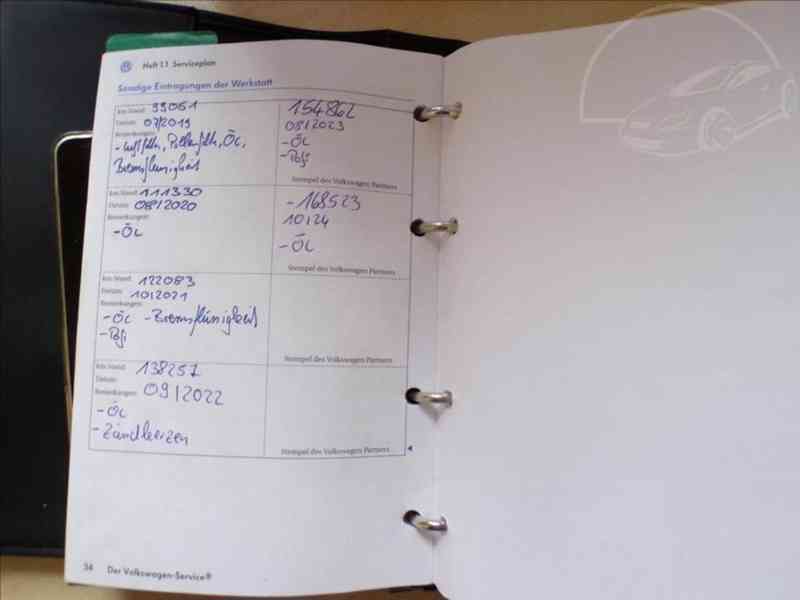 Heft 1.1 Serviceplan
Sonstige Eintragungen der Werkstatt
km-Stand: 99061
Datum: 07/2019
Bemerkungen:
- Luftfilt., Pollenfilt., Öl,
Bremsflüssigkeit
154862
05/2023
- Öl
- Pofi
Stempel des Volkswagen Partners
km-Stand: 111330
Datum: 08/2020
Bemerkungen:
- Öl
- 168523
10/24
- Öl
Stempel des Volkswagen Partners
km-Stand: 122083
Datum: 10/2021
Bemerkungen:
- Öl - Bremsflüssigkeit
- Pofi
Stempel des Volkswagen Partners
km-Stand: 138257
Datum:
Bemerkungen: 09/2022
- Öl
- Zündkerzen
Stempel des Volkswagen Partners
34 Der Volkswagen-Service®